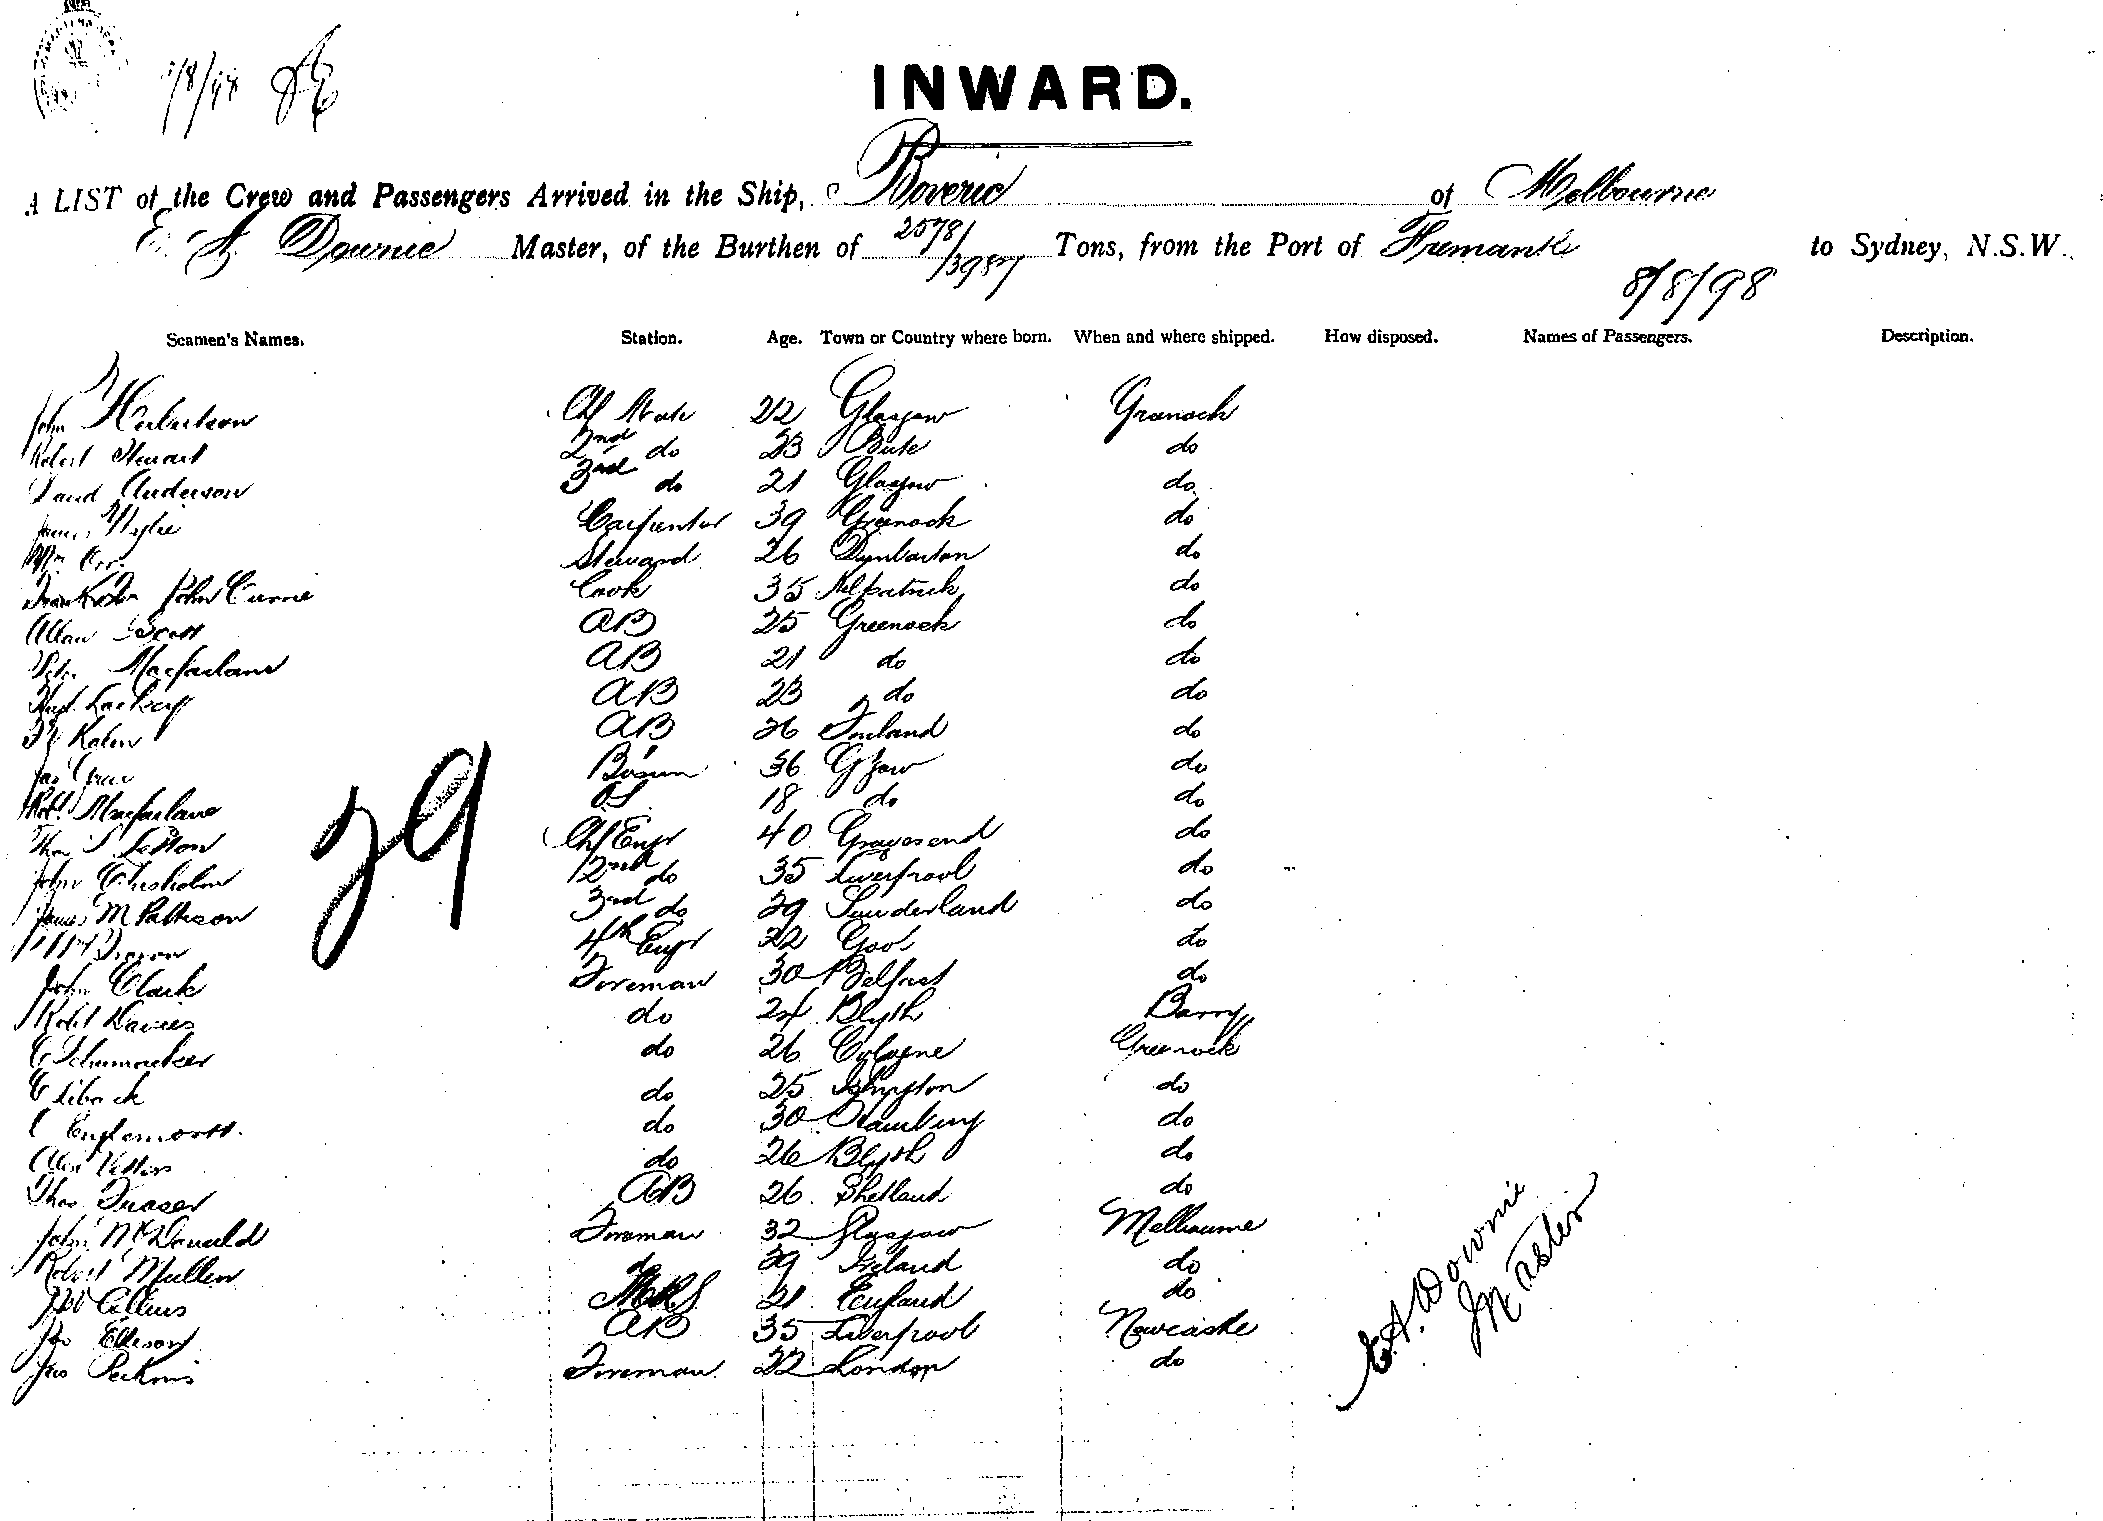 8/8/98
INWARD.
A LIST of the Crew and Passengers Arrived in the Ship, Boveric of Melbourne
E. A. Downie Master, of the Burthen of 2578/3987 Tons, from the Port of Fremantle to Sydney, N.S.W.
8/8/98
Seamen's Names. Station. Age. Town or Country where born. When and where shipped. How disposed. Names of Passengers. Description.
John Ch Mate 22 Glasgow Greenock
Robert Stewart 2nd do 23 Bute do
David Anderson 3rd do 21 Glasgow do
James Wylie Carpenter 39 Greenock do
Wm Orr Steward 26 Dumbarton do
John Currie Cook 35 Kilpatrick do
Allan Scott AB 25 Greenock do
Peter Macfarlane AB 21 do do
Lackey AB 23 do do
AB 26 Finland do
Jas Bosun 36 Gl'gow do
Robt. Macfarlane OS 18 do do
Thos S Ch Engr 40 Gravesend do
John Chisholm 2nd do 35 Liverpool do
James M Pattison 3rd do 29 Sunderland do
4th Engr 22 do
John Clark Fireman 30 Belfast do
Robt Davies do 24 Blyth Barry
C Schumacker do 26 Cologne Greenock
do 25 Islington do
do 30 Hamburg do
Alex do 26 Blyth do
Thos Fraser AB 26 Shetland do
John McDonald Fireman 32 Glasgow Melbourne
Robert Mullen do 29 Ireland do
21 England do
Jas Ellison AB 35 Liverpool Newcastle
Jas Perkins Fireman 22 London do
29
E. A. Downie
Master